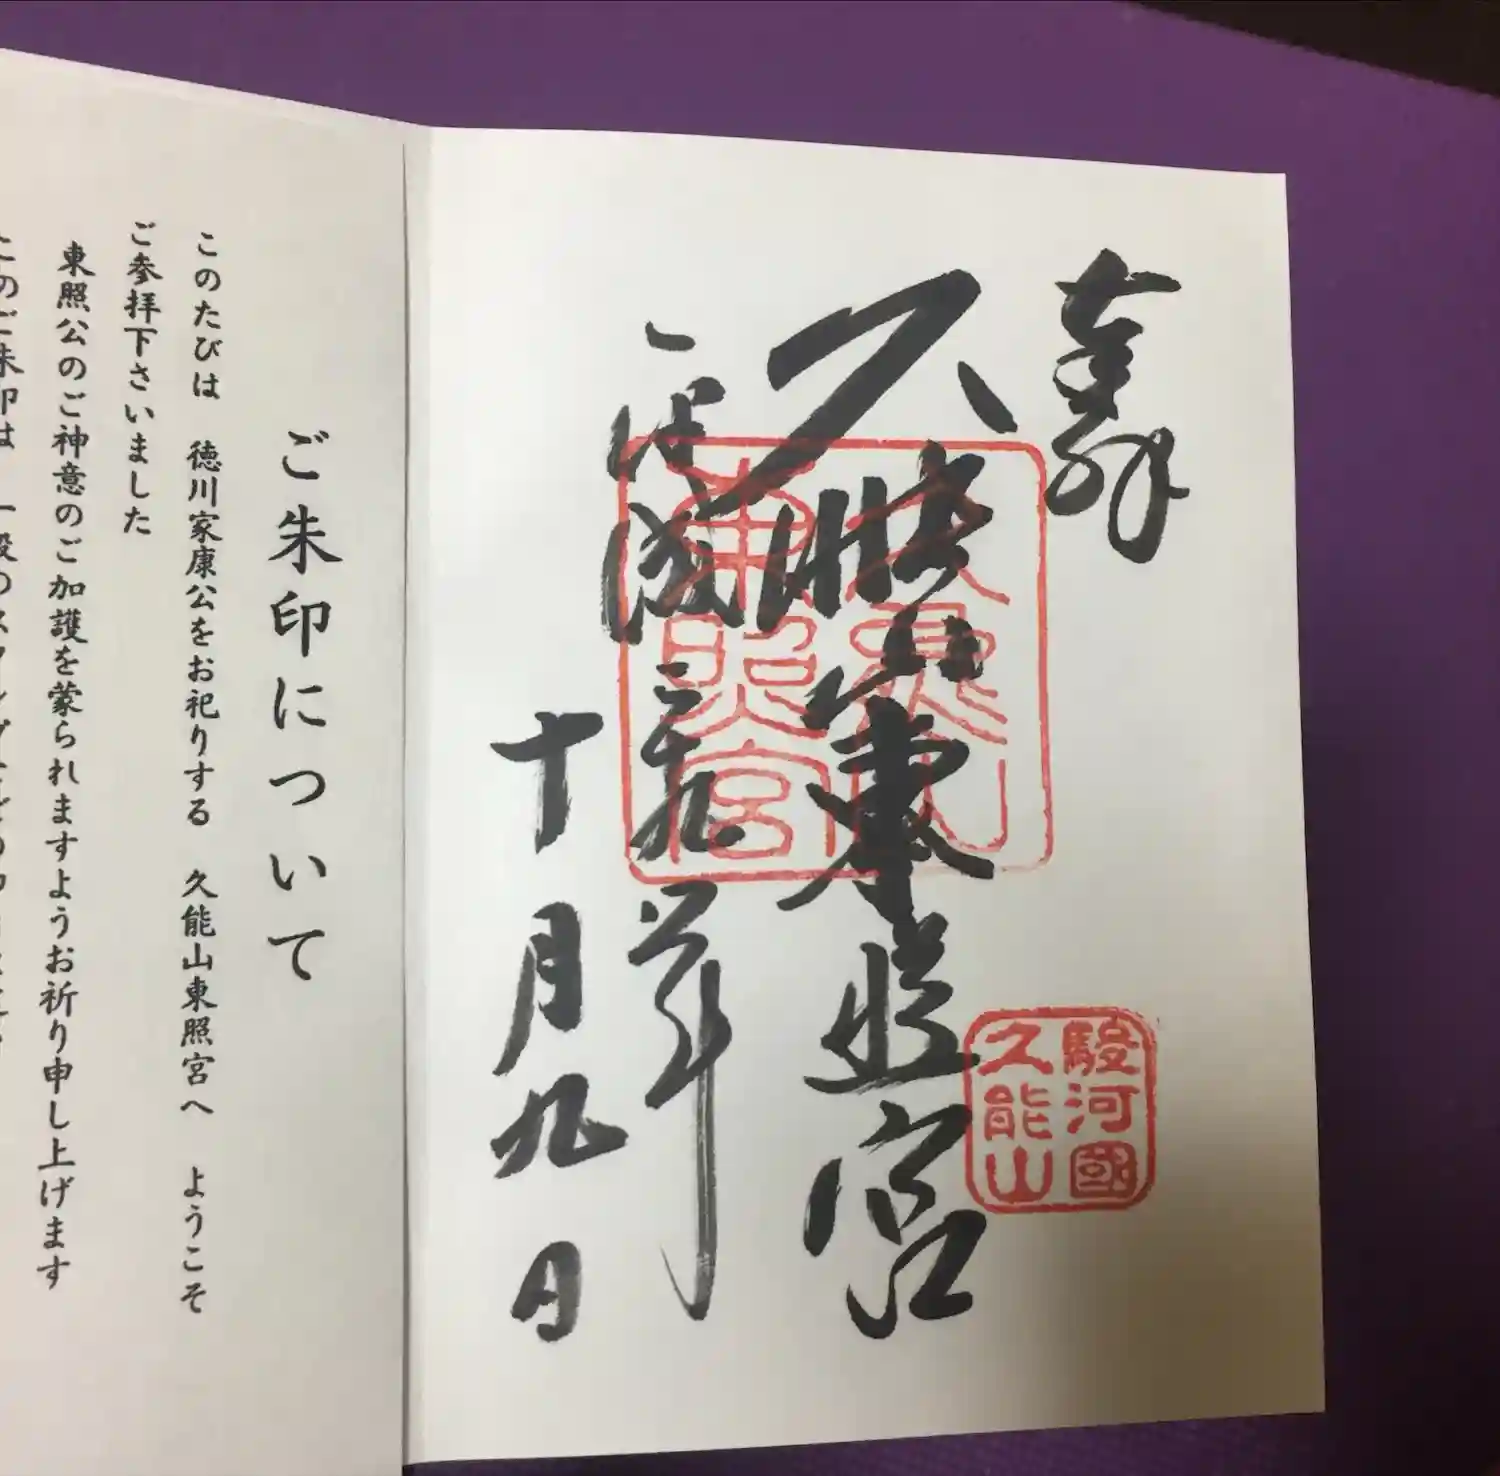 奉拝
駿河國
久能山
久能山東照宮
久能山
東照宮
平成二十九年
十月九日
ご朱印について
このたびは 徳川家康公をお祀りする 久能山東照宮へ ようこそ
ご参拝下さいました
東照公のご神意のご加護を蒙られますようお祈り申し上げます
このご朱印は 一般のスタンプなどの